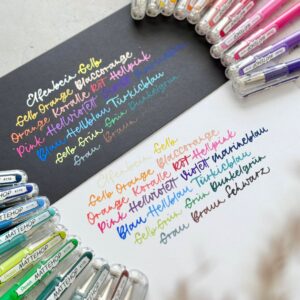 Elfenbein Gelb
Gelb Orange Blaccorange
Orange Koralle Rot Hellpink
Pink Hellviolett
Blau Hellblau Türkisblau
Gelb Grün Grün Dunkelgrün
Grau Braun
Elfenbein Gelb
Gelb Orange Blaccorange
Orange Koralle Rot Hellpink
Pink Hellviolett Violett Marineblau
Blau Hellblau Türkisblau
Gelb Grün Grün Dunkelgrün
Grau Braun Schwarz
MATTEHOP
MATTEHOP
MATTEHOP
MATTEHOP